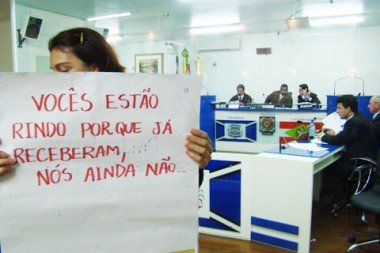 VOCÊS ESTÃO
RINDO PORQUE JÁ
RECEBERAM,
NÓS AINDA NÃO